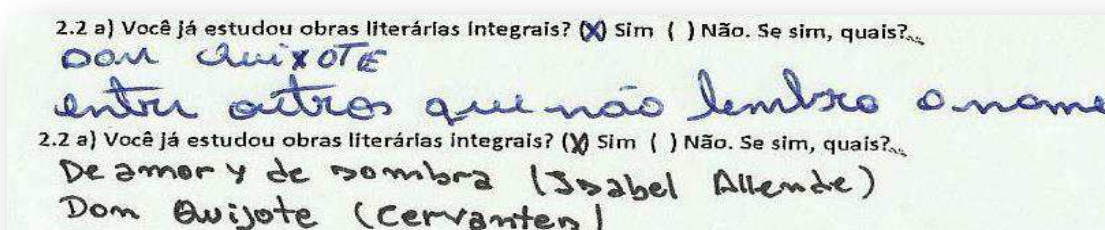 2.2 a) Você já estudou obras literárias integrais? (X) Sim ( ) Não. Se sim, quais?...
Dom QuixoTE
entre outros que não lembro o nome
2.2 a) Você já estudou obras literárias integrais? (X) Sim ( ) Não. Se sim, quais?...
De amor y de sombra (Isabel Allende)
Dom Quijote (Cervantes)